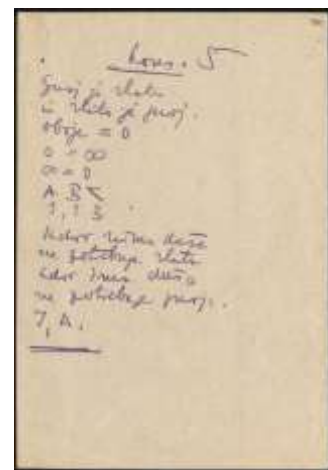 Kons. 5
Gnoj je zlato
in zlato je gnoj.
oboje = 0
0 = ∞
∞ = 0
A B <
1, 2, 3
kdor nima duše
ne potrebuje zlata
kdor ima dušo
ne potrebuje gnoja.
I, A.